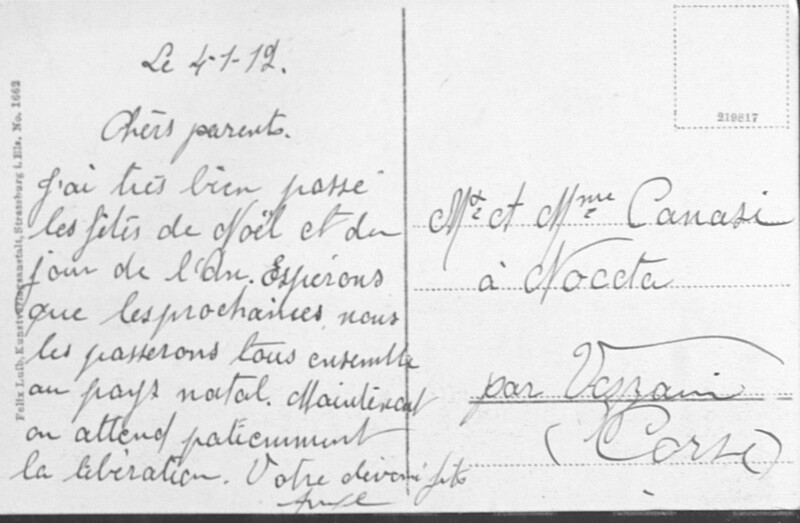 Le 4-1-19.
Chers parents.
J'ai très bien passé
les fêtes de Noël et du
jour de l'An. Espérons
que les prochaines, nous
les passerons tous ensemble
au pays natal. Maintenant
on attend patiemment
la libération. Votre fils
Mr et Mme Canasi
à Noceta
par Vezzani
(Corse)
219817
Felix Luib, Kunstverlagsanstalt, Strassburg i. Els. No. 1662